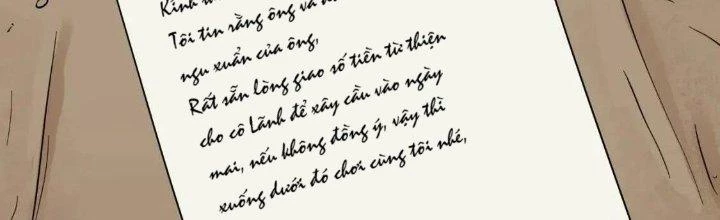 Kính
Tôi tin rằng ông và
ngu xuẩn của ông,
Rất sẵn lòng giao số tiền từ thiện
cho cô Lãnh để xây cầu vào ngày
mai, nếu không đồng ý, vậy thì
xuống dưới đó chơi cùng tôi nhé,